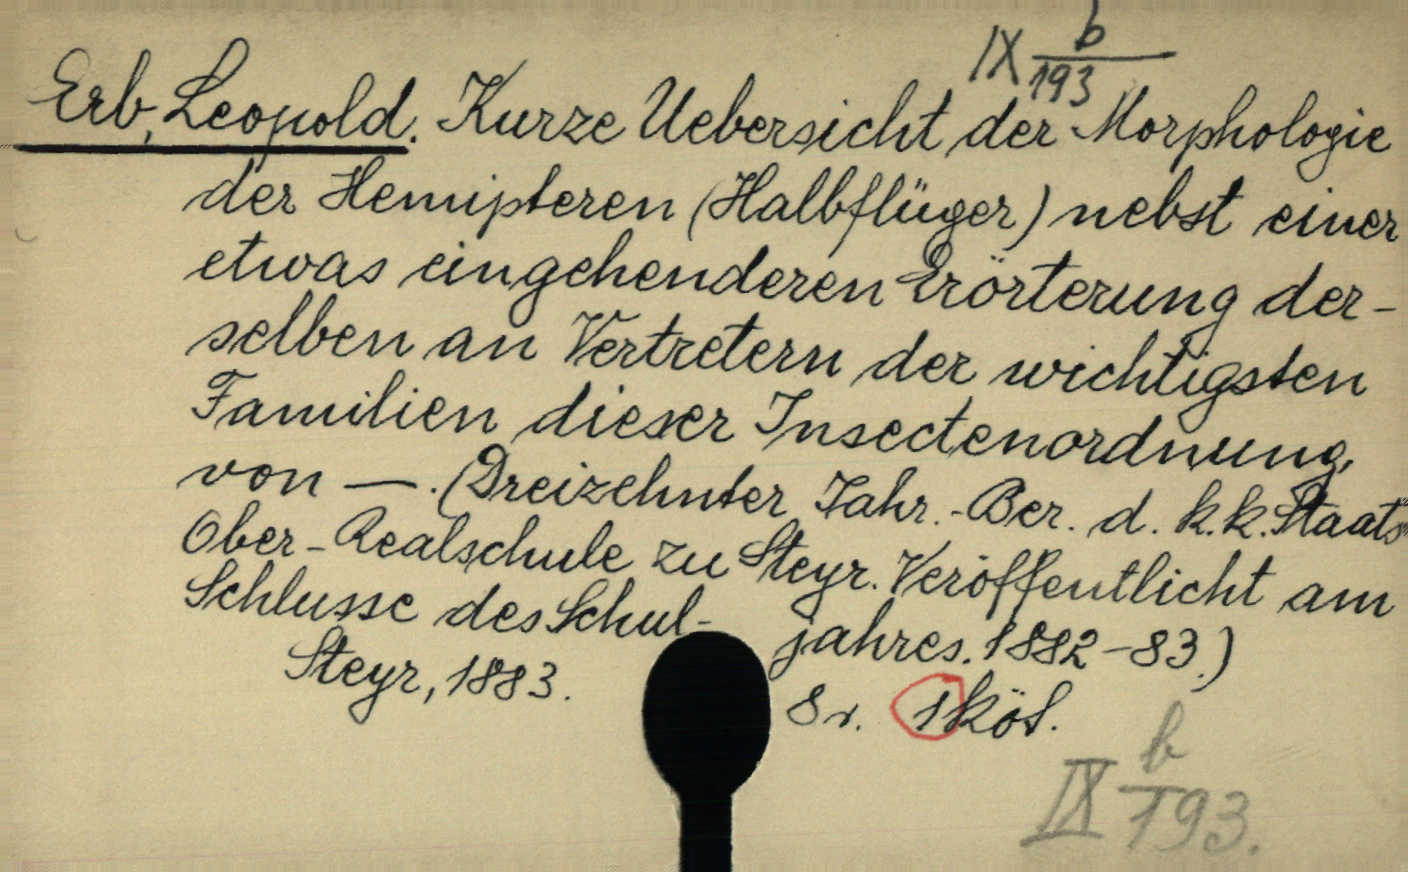 IX b/193
Erb, Leopold. Kurze Uebersicht der Morphologie
der Hemipteren (Halbflüger) nebst einer
etwas eingehenderen Erörterung der-
selben an Vertretern der wichtigsten
Familien dieser Insectenordnung,
von —. (Dreizehnter Jahr.-Ber. d. k. k. Staats-
Ober-Realschule zu Steyr. Veröffentlicht am
Schlusse des Schul- jahres. 1882-83.)
Steyr, 1883. 8r. 1 köt.
IX b/193.